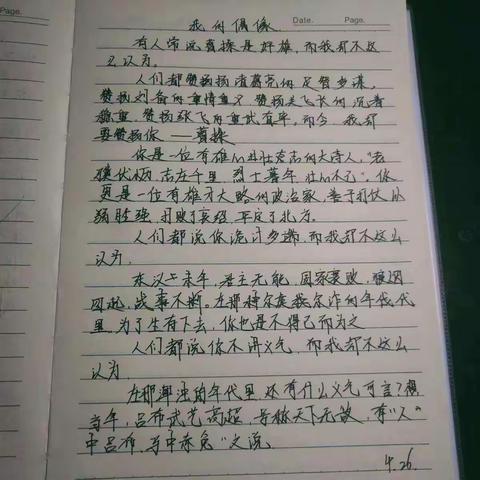 我的偶像
Date.
Page.
有人常说曹操是奸雄，而我却不这
么认为。
人们都赞扬诸葛亮的足智多谋，
赞扬刘备的重情重义，赞扬关飞长的沉着
稳重，赞扬张飞的勇武直率。而今，我却
要赞扬你——曹操
你是一位有雄心壮志的大诗人，“老
骥伏枥，志在千里，烈士暮年，壮心不已”。你
更是一位有雄才大略的政治家，善于打仗，以
弱胜强，打败了袁绍，平定了北方。
人们都说你诡计多端，而我却不这么
认为，
东汉上末年，君主无能，国家衰败，狼烟
四起，战事不断。在那种尔虞我尔诈的年代代
里，为了生存下去，你也是不得已而为之
人们都说你不讲义气，而我却不这么
认为
在那浑浊的年代里，还有什么义气可言？想
当年，吕布武艺高超，号称天下无敌，有“人
中吕布，马中赤兔”之说，
4.26.